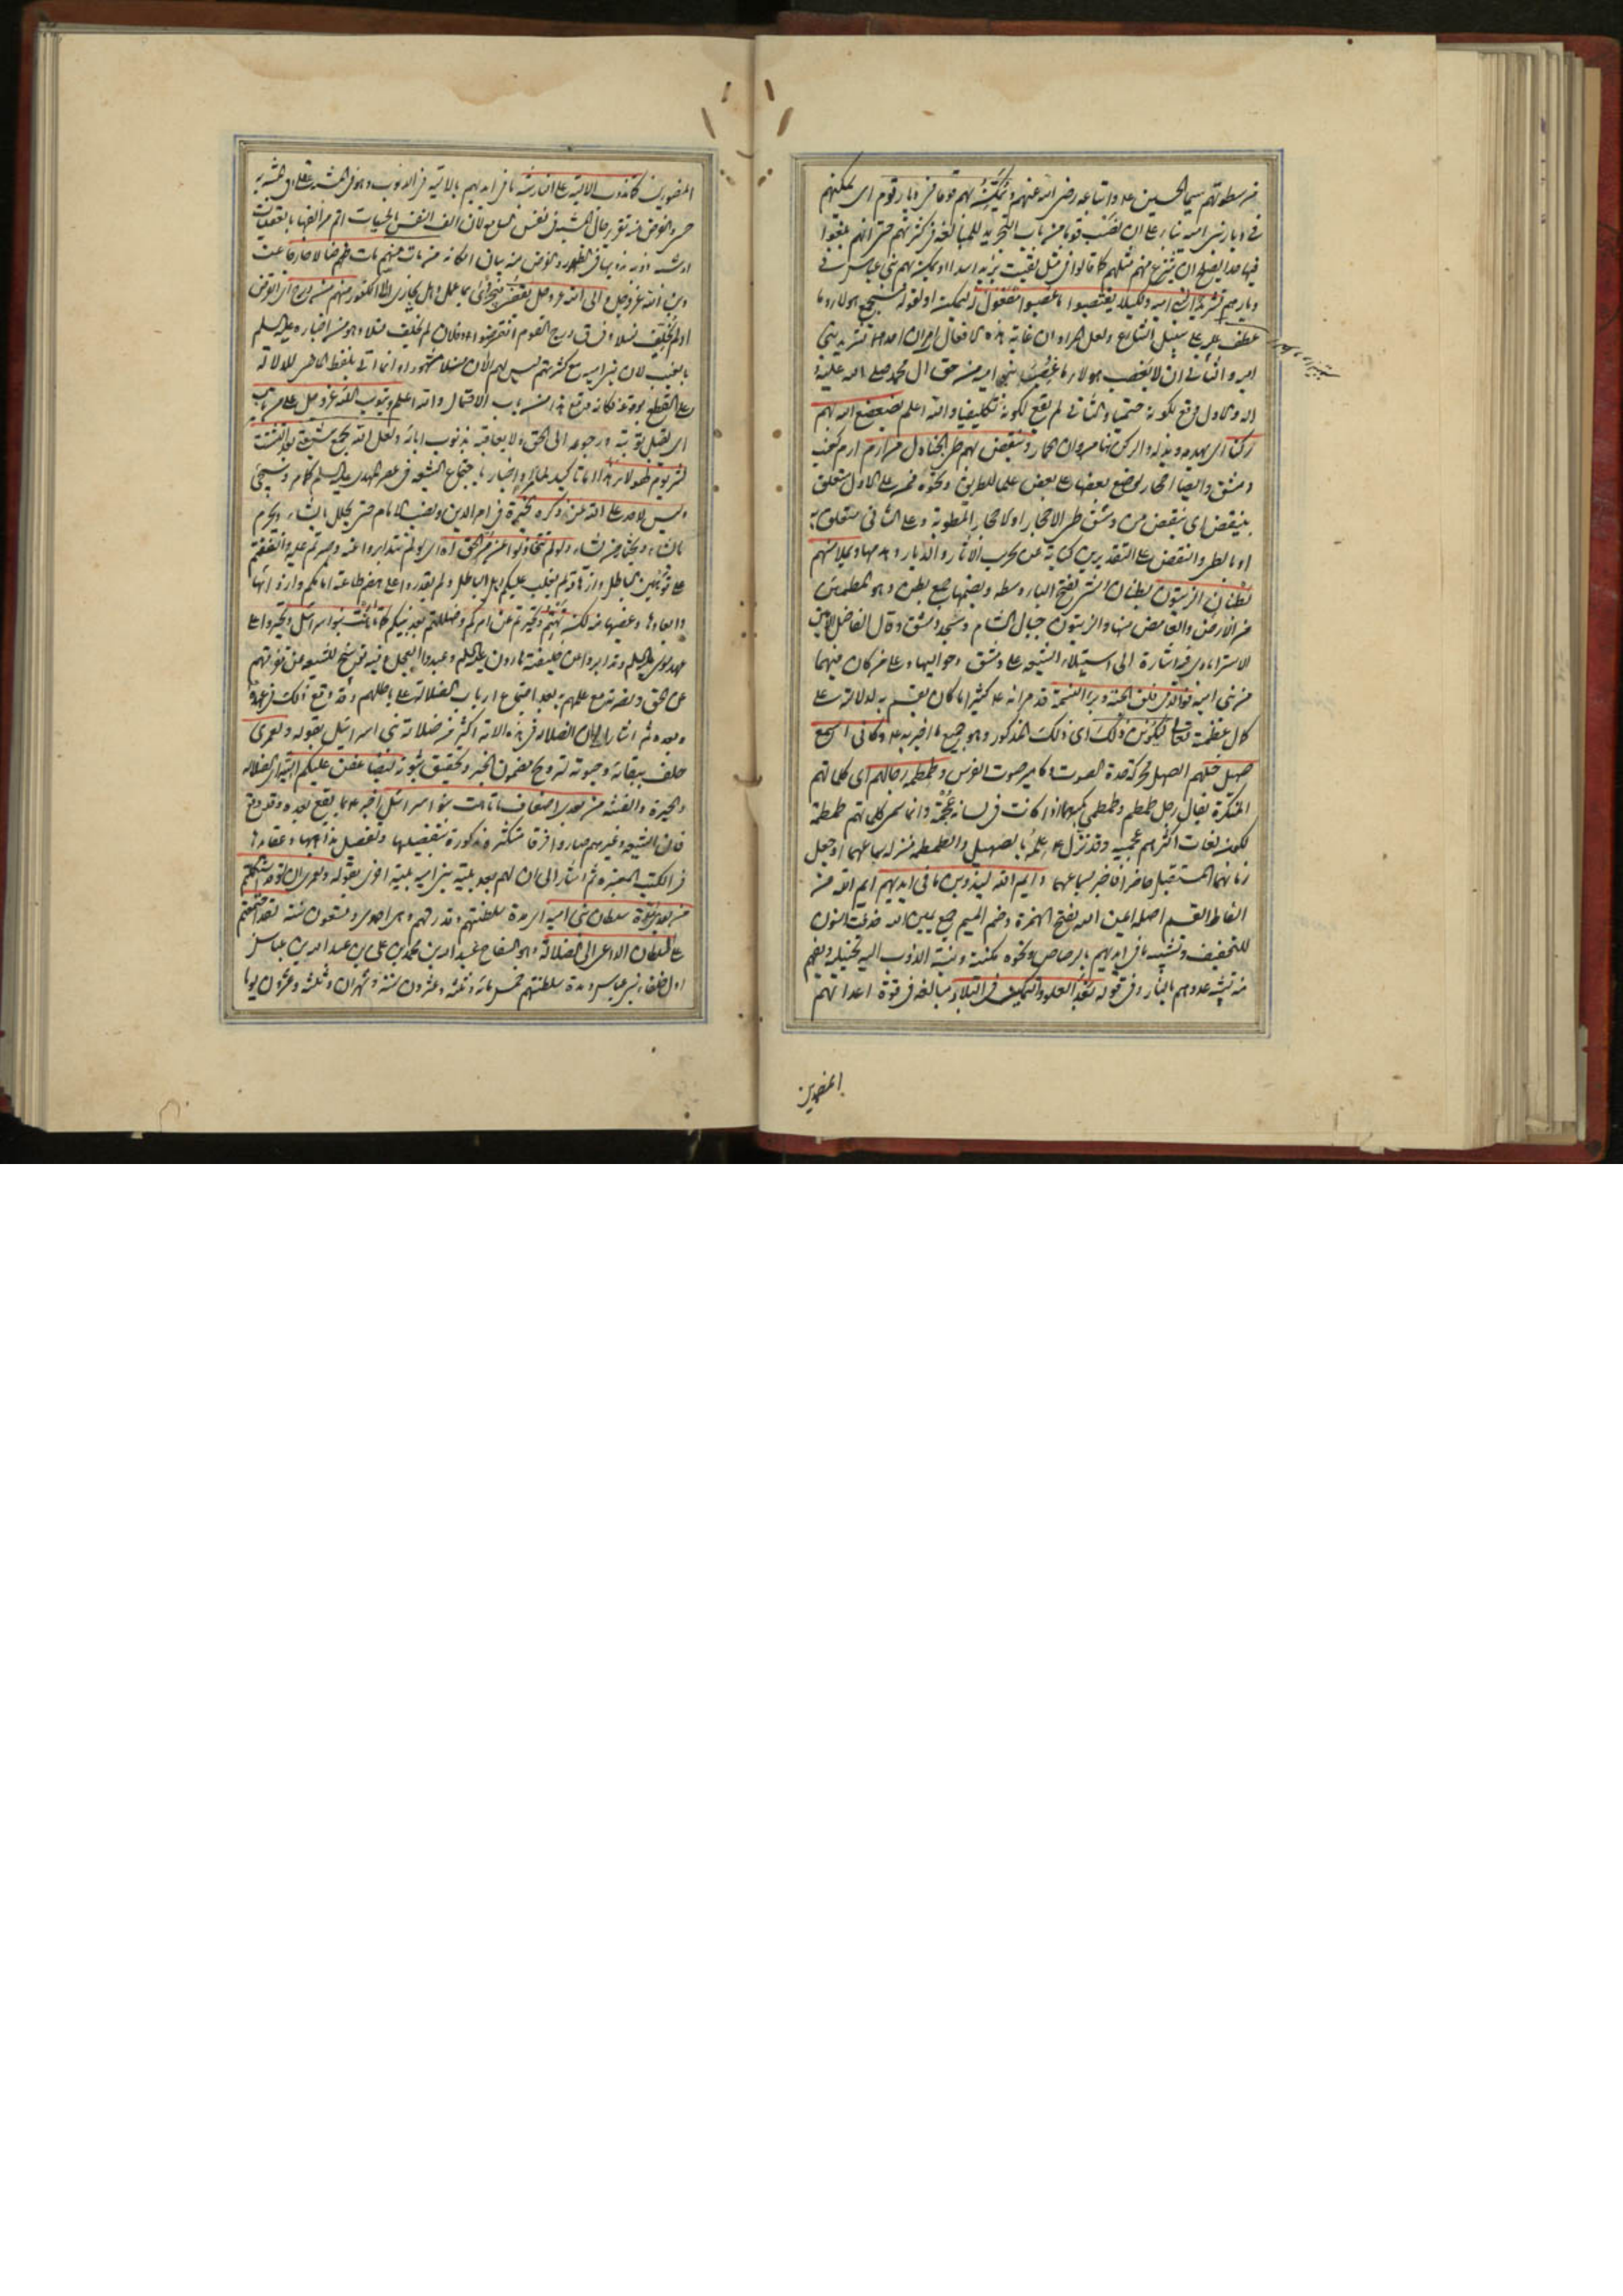 من سطوتهم سيما الحسين عليه واتباعه رضي الله عنهم ويمكن بهم قوما في ديار قوم اى يمكنهم
في ديار بنى اميه بناء على ان نصب قوما من باب التجريد للمبالغة في كثرتهم حتى انهم بلغوا
فيها حدا يصلح ان ينتزع منهم مثلهم كما قالوا في مثل لقيت بزيد اسدا او يمكن بهم بنى عباس في
ديارهم تشريدا لبنى اميه ولكيلا يغتصبوا ما غصبوا مفعول له ليمكن او لقوله
عطف عليه على سبيل التنازع ولعل المراد ان غاية هذه الافعال امران احدهما تشريد بنى
اميه والثانى ان لا يغصب هولاء ما غصب بنو اميه من حق ال محمد صلى الله عليه و
اله والاول وقع لكونه حتميا والثانى لم يقع لكونه تكليفيا والله اعلم يضعضع الله بهم
ركنا اى يهدمه ويذله والركن وينقض بهم طى الجنادل من ارم ارم كعنب
دمشق وايضا احجار توضع بعضها على بعض علما للطريق ونحوه فمن على الاول متعلق
بينقض اى ينقض من دمشق طى الاحجار اولا حجار المطوية وعلى الثانى متعلق به
او بالطى والنقض على التقديرين كناية عن تخريب الآثار والديار وهدمها ويملأ منهم
بطنان الزيتون بطنان الشىء بفتح الباء وسطه وبضمها جمع بطن وهو المطمئن
من الارض والغامض منها والزيتون جبال الشام ومسجد دمشق وقال الفاضل الامين
الاسترابادى فيه اشارة الى استيلاء الشيعه على دمشق وحواليها وعلى من كان فيهما
من بنى اميه فوالذى فلق الحبة وبرأ النسمة قد مر انه عليه كثيرا ما كان يقسم به لدلالته على
كمال عظمته تعالى ليكونن ذلك اى ذلك المذكور وهو جميع ما اخبر به عليه وكأنى اسمع
صهيل خيلهم الصهيل محركة حدة الصوت وكامير صوت الفرس وطمطمة رجالهم اى كلماتهم
المنكرة يقال رجل طمطم وطمطمى بكسرهما اذا كانت في لسانه عجمة وانما سمى كلماتهم طمطمة
لكون لغات اكثرهم عجميه وقد نزل عليه علمه بالصهيل والطمطمه منزلة سماعهما او جعل
زمانهما المستقبل حاضرا فاخبر بسماعهما وايم الله ليذوبن ما في ايديهم ايم الله من
الفاظ القسم اصله ايمن الله بفتح الهمزة وضم الميم جمع يمين الله حذفت النون
للتخفيف وتشبيه ما في ايديهم بالرصاص ونحوه مكنية ونسبة الذوب اليه تخييلية ويفهم
منه تشبيه عدوهم بالنار وفى قوله بعد العلو والتمكين في البلاد مبالغه في قوة اعدائهم
المنصورين
المنصورين كما تذوب الالية على النار شبه ما في ايديهم بالالية في الذوب وهو في المشبه عقلى وفى المشبه به
حسى والغرض منه تقرير حال المشبه في نفس السامع لان الف النفس بالحسيات اتم من الفها بالعقليات
من مات منهم مات ضالا
والى الله عز وجل يفضى منهم من درج
او لم يخلف نسلا وفى ق درج القوم انقرضوا وفلان لم يخلف نسلا وهو من اخباره عليه السلم
بالغيب لان بنى اميه مع كثرتهم ليس لهم الآن نسلا مشهورا وانما اتى بلفظ الماضى للدلالة
على القطع بوقوعه فكانه وقع من باب الاحتمال والله اعلم ويتوب الله عز وجل على من تاب
اى يقبل توبته ورجوعه الى الحق ولا يعاقبه بذنوب ابائه ولعل الله يجمع شيعتى بعد التشتت
لشر يوم لهولاء واخبار باجتماع الشيعه في عصر المهدى عليه السلم كما مر وسيجئ
وليس لاحد على الله عز ذكره الخيرة في امر الدين ونصب الامام حتى يحلل ما يشاء ويحرم
ما يشاء ويختار من يشاء ولو لم تتخاذلوا عن مر الحق اه اى لو لم تتدابروا عنه وصبرتم عليه واتفقتم
على توهين الباطل وازالة لم يغلب عليكم اهل الباطل ولم يقدروا على هضم طاعة امامكم وازوائها
وابعادها وغصبها منه لكن تهتم وتحيرتم عن امركم وضللتم بعد نبيكم كما تاهت بنو اسرائيل وتحيروا على
عهد موسى عليه السلم وتدابروا عن خليفته هارون عليه السلم وعبدوا العجل فيه توبيخ للشيعه من تفرقتهم
عن الحق ونصرته مع علمهم به بعد اجتماع ارباب الضلالة على باطلهم وقد وقع ذلك في عهده
وبعده ثم اشار الى ان الضلال في هذه الامة اكثر من ضلالة بنى اسرائيل بقوله ولعمرى
حلف ببقائه وحيوته لترويج مضمون الخبر وتحقيق ثبوته ليضاعفن عليكم التيه اى الضلالة
والحيرة والفتنة من بعدى اضعاف ما تاهت بنو اسرائيل اخبر عليه بما يقع بعده وقد وقع
فان الشيعه وغيرهم صاروا فرقا متكثره مذكورة بتفصيلها وتفصيل مذاهبها وعقائدها
في الكتب المعتبره ثم اشار الى ان لهم بعد بلية بنى اميه بلية اخرى بقوله ولعمرى ان لو قد استكملتم
من بعدى مدة سلطان بنى اميه اى مدة سلطنتهم وقدرتهم وهى احدى وتسعون سنة لقد اجتمعتم
على السلطان الداعى الى الضلالة وهو السفاح عبد الله بن محمد بن على بن عبد الله بن عباس
اول خلفاء بنى عباس ومدة سلطنتهم خمسمائة وثلثة وعشرون سنة وشهران وثلثة وعشرون يوما